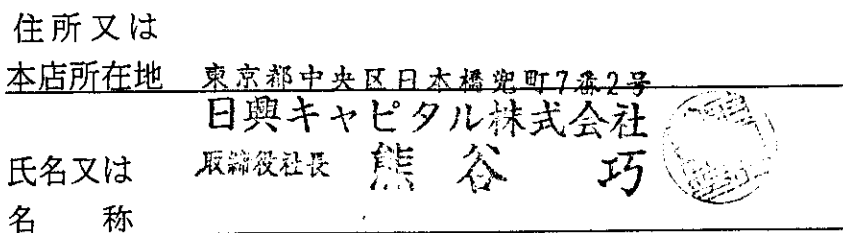 住所又は
本店所在地 東京都中央区日本橋兜町7番2号
日興キャピタル株式会社
氏名又は 取締役社長 熊谷 巧
名 称